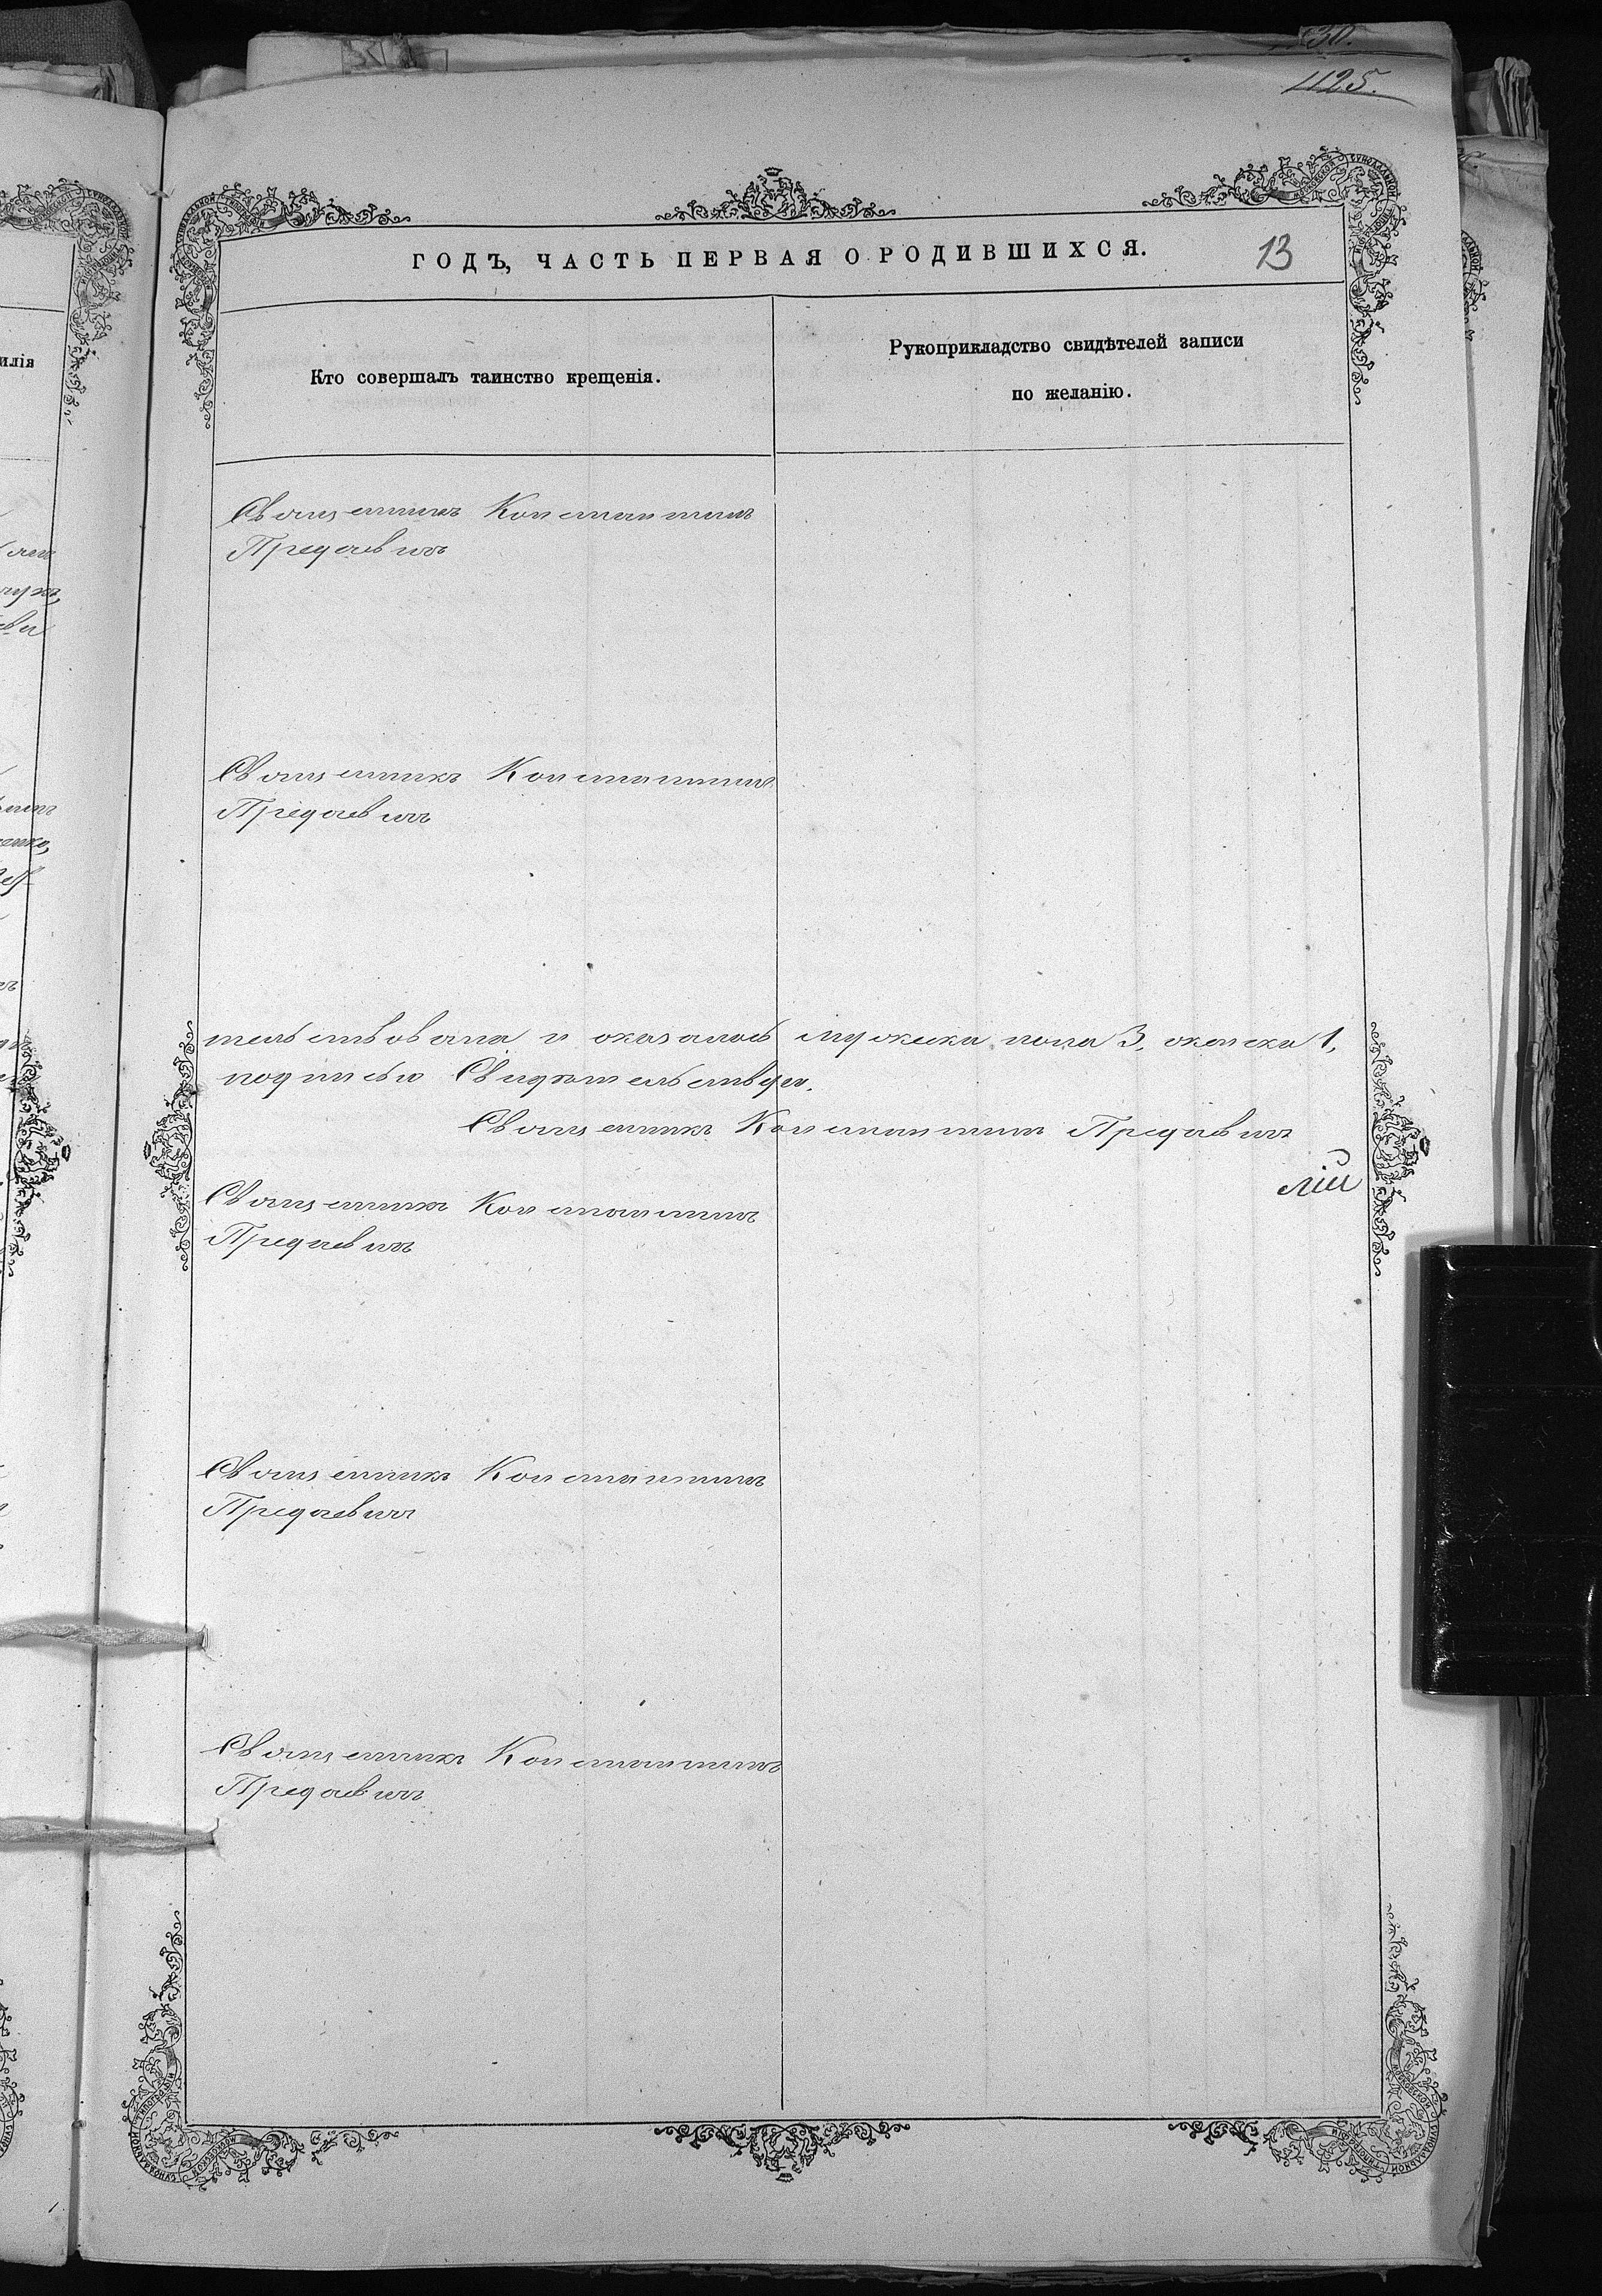 30.
1125.
ГОДЪ, ЧАСТЬ ПЕРВАЯ О РОДИВШИХСЯ.
13
илія
Кто совершалъ таинство крещенія.
Рукоприкладство свидѣтелей записи
по желанію.
Священникъ Константинъ
Предаевичъ
Священникъ Константинъ
Предаевичъ
тельствована и оказалось мужска пола 3, женска 1,
подписью Свидѣтельствую.
Священникъ Константинъ Предаевичъ
Священникъ Константинъ
Предаевичъ
Священникъ Константинъ
Предаевичъ
Священникъ Константинъ
Предаевичъ